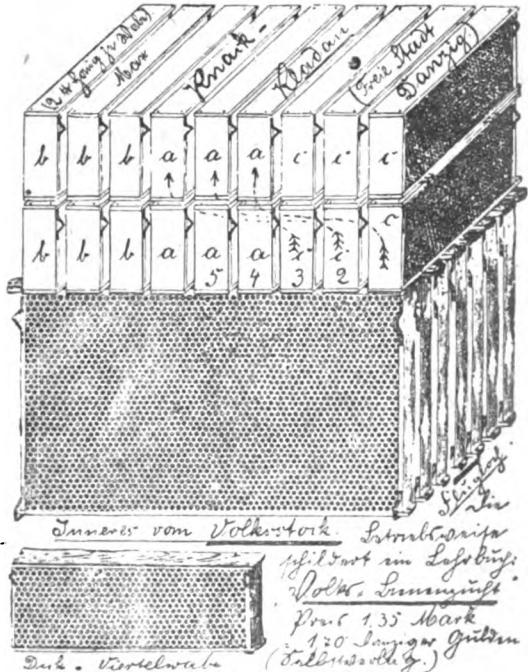 Max Knack - Kladau (Freie Stadt Danzig)
b b b a a a c c c
b b b a a a c c c
5 4 3 2
Flugloch
Inneres vom Volksstock. Die Betriebsweise
schildert ein Lehrbuch:
Volks-Bienenzucht
Preis 1,35 Mark
1.70 Danziger Gulden
(Selbstverlag.)
Viertelwabe